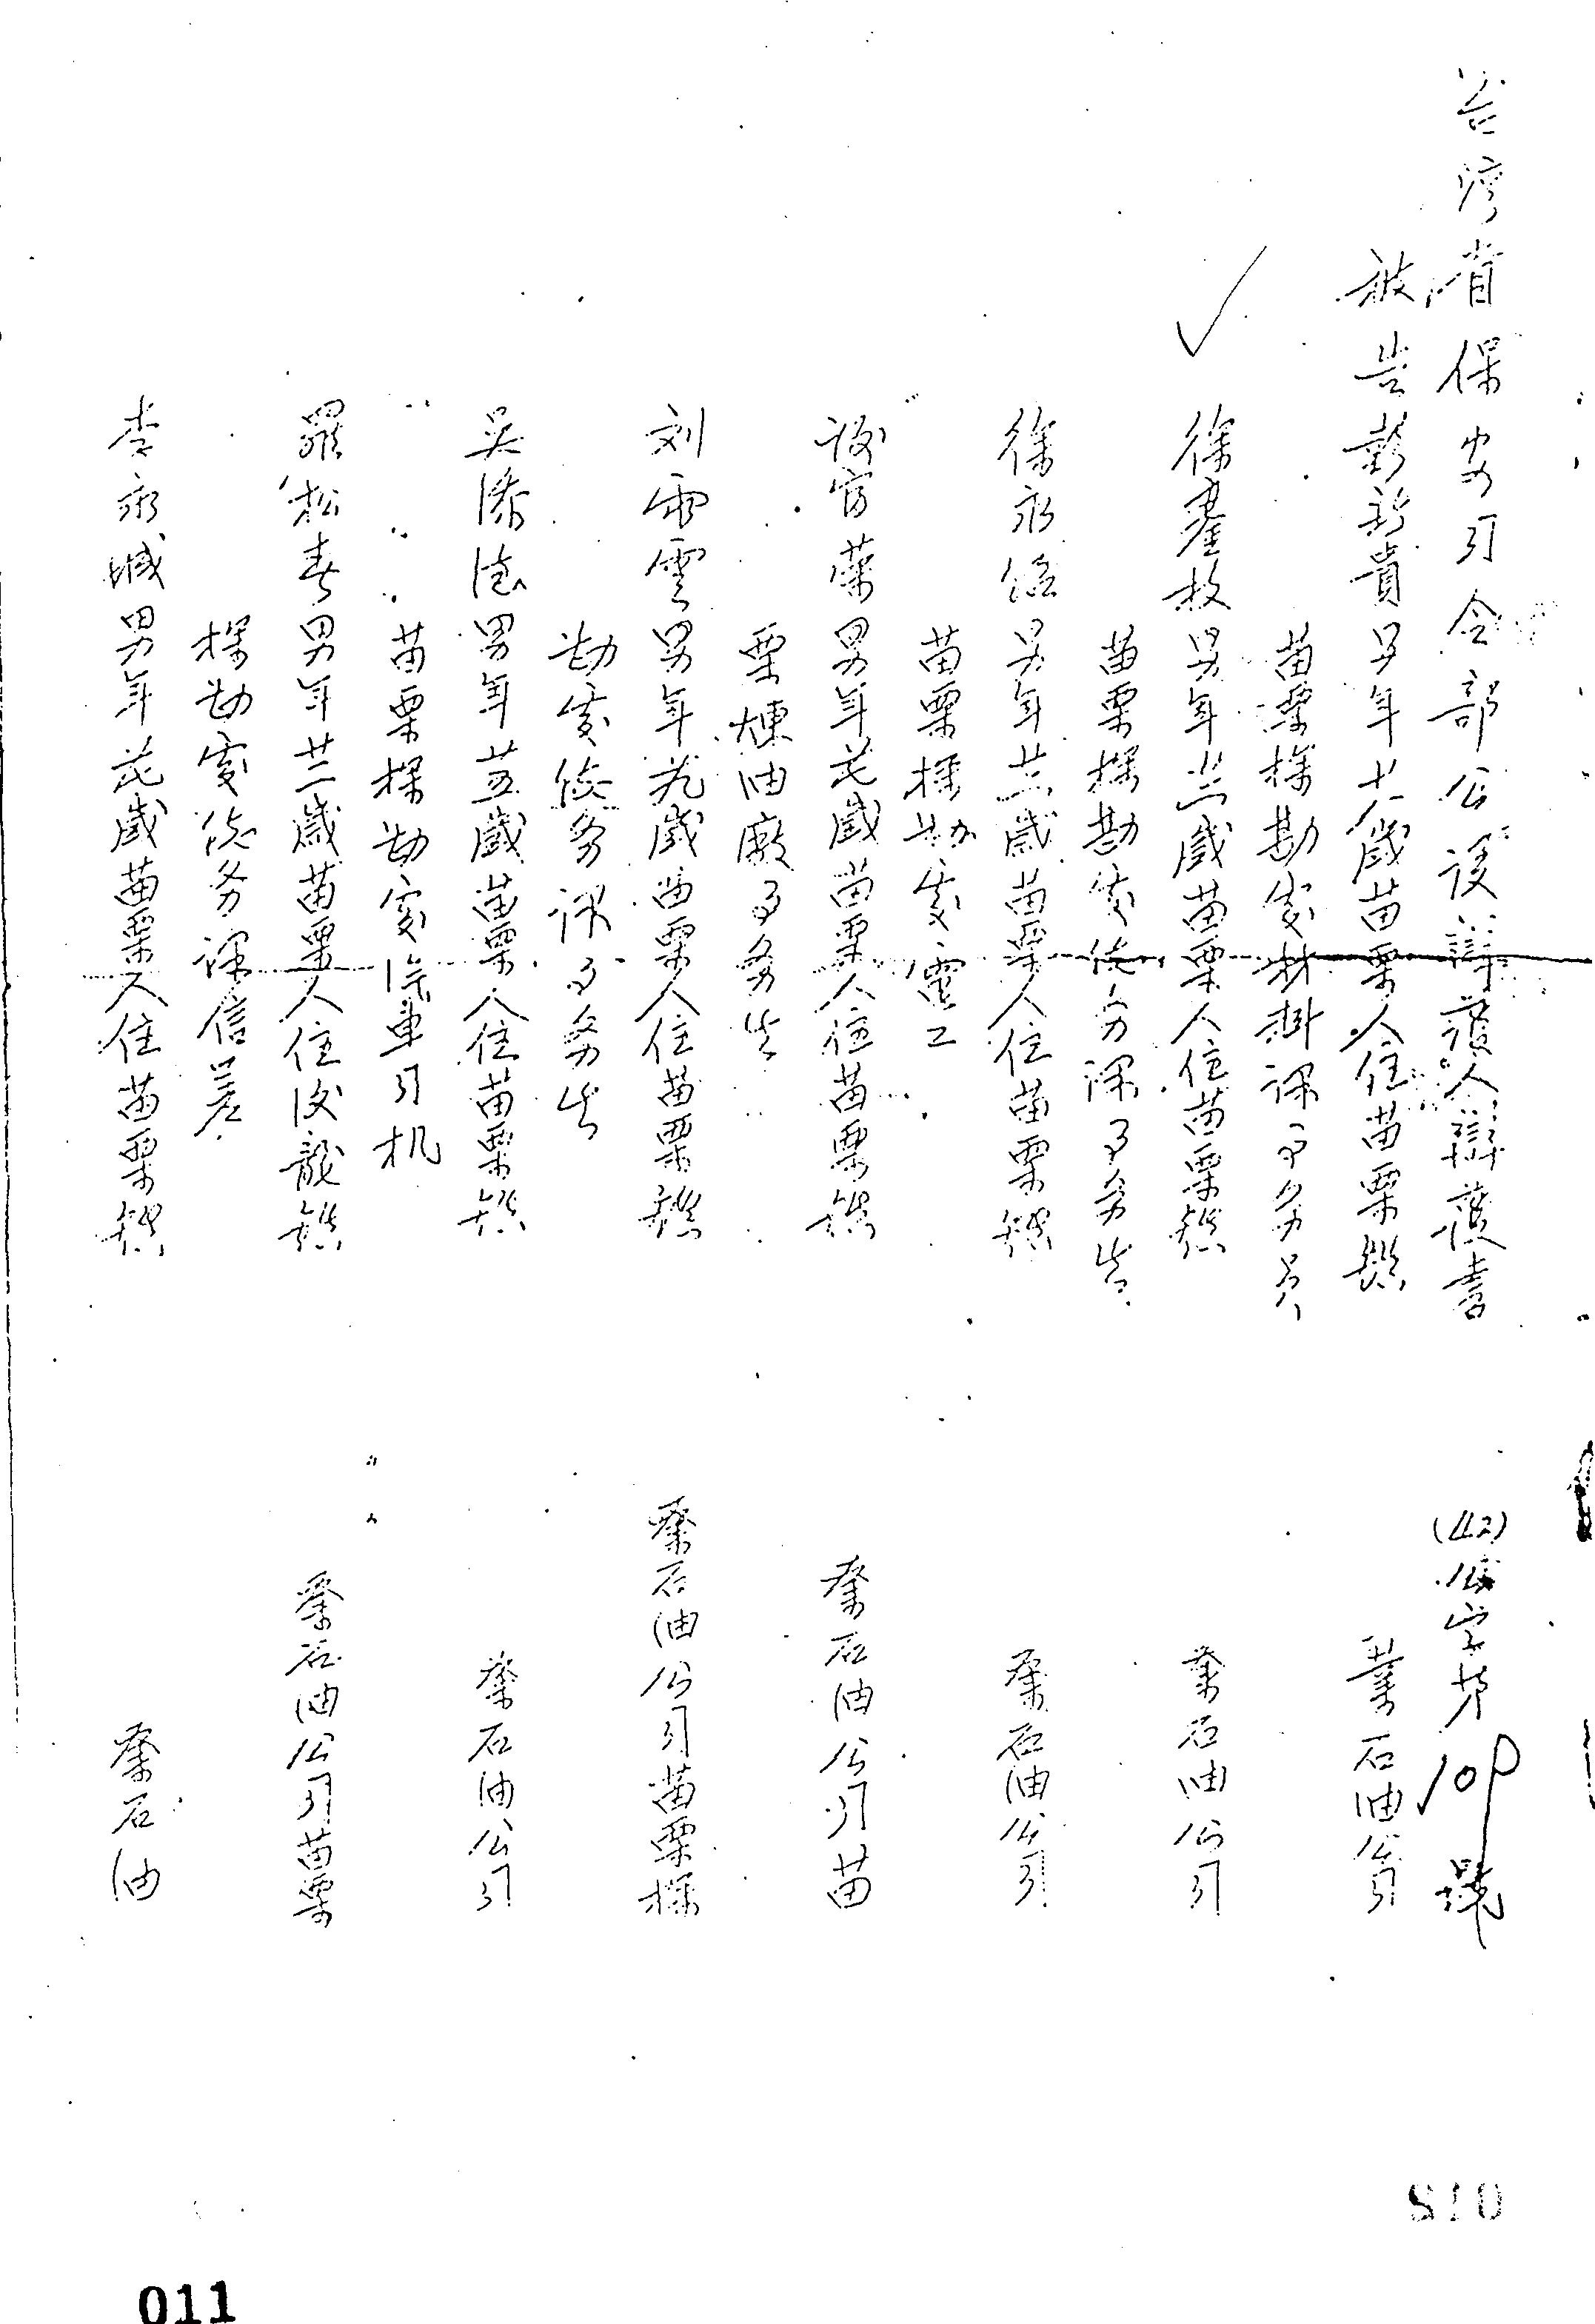 台灣省保安司令部公設辯護人辯護書 (42)公字第109號
被告彭新貴 男年廿八歲苗栗人住苗栗鎮 業石油公司
苗栗探勘處材料課事務員
徐 枚 男年 歲苗栗人住苗栗鎮 業石油公司
苗栗探勘處總務課事務員
徐永 男年卅 歲苗栗人住苗栗鎮 業石油公司
苗栗探勘處電工
官榮 男年 歲苗栗人住苗栗鎮 業石油公司苗
栗煉油廠事務員
刘雲 男年 歲苗栗人住苗栗鎮 業石油公司苗栗探
勘處總務課事務員
吳添德 男年 歲苗栗人住苗栗鎮 業石油公司
苗栗探勘處汽車司机
羅松春 男年 歲苗栗人住後龍鎮 業石油公司苗栗
探勘處總務課信差
李永城 男年 歲苗栗人住苗栗鎮 業石油
011